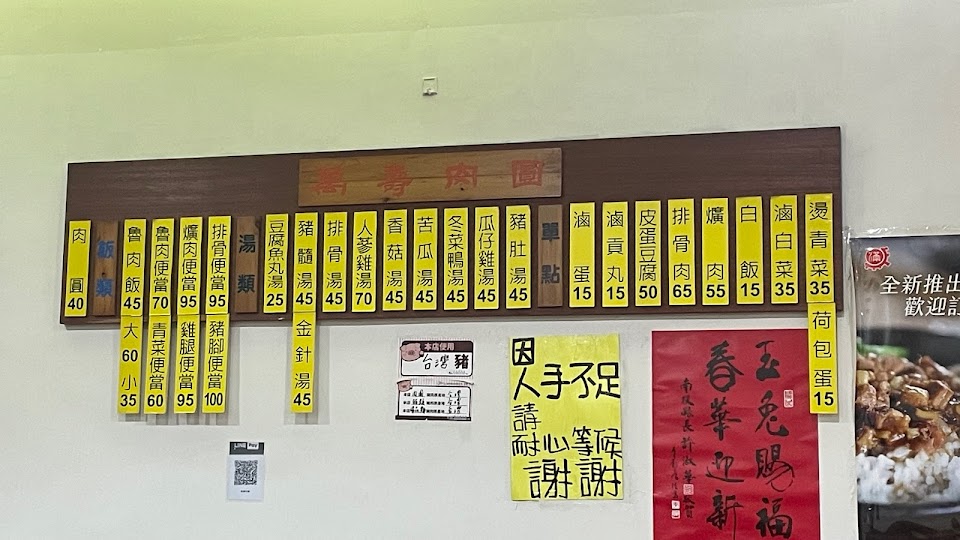 萬壽肉圓
肉圓 40
飯類
魯肉飯 45
大 60 小 35
魯肉便當 70
青菜便當 60
爌肉便當 95
雞腿便當 95
排骨便當 95
豬腳便當 100
湯類
豆腐魚丸湯 25
豬髓湯 45
金針湯 45
排骨湯 45
人蔘雞湯 70
香菇湯 45
苦瓜湯 45
冬菜鴨湯 45
瓜仔雞湯 45
豬肚湯 45
單點
滷蛋 15
滷貢丸 15
皮蛋豆腐 50
排骨肉 65
爌肉 55
白飯 15
滷白菜 35
燙青菜 35
荷包蛋 15
本店使用
台灣豬
LINE Pay
因人手不足
請
耐心等候
謝謝
玉兔賜福
春華迎新
全新推出
歡迎訂